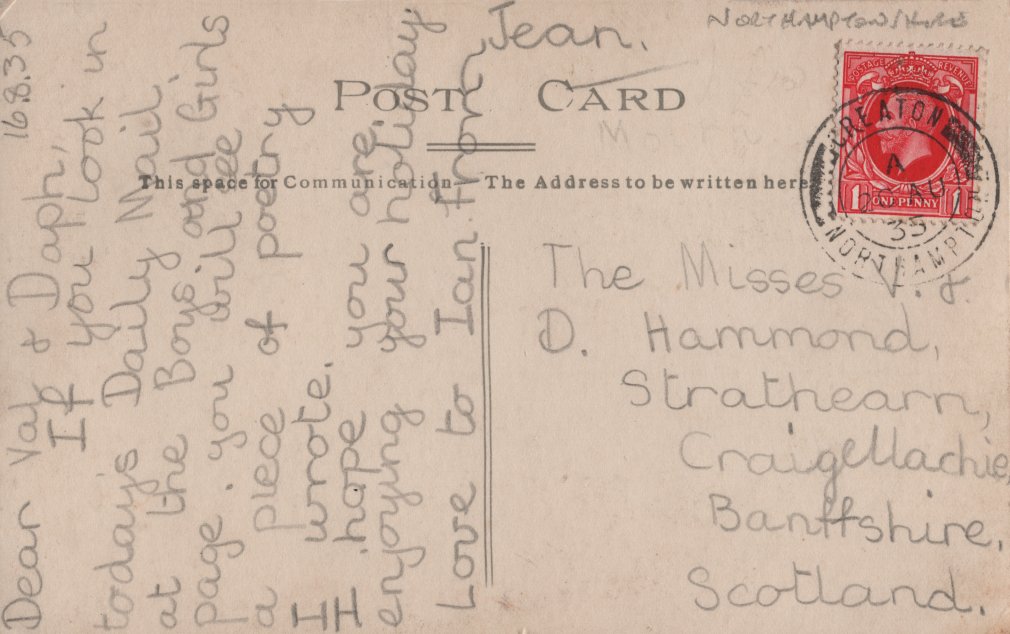 NORTHAMPTONSHIRE
POST CARD
This space for Communication
The Address to be written here
POSTAGE REVENUE
1 ONE PENNY 1
CREATON
A
16 AU
35
NORTHAMPTON
16.8.35
Dear Val & Daph,
If you look in
todays Daily Mail
at the Boys and Girls
page. you will see
a piece of poetry
I wrote.
I hope you are
enjoying your holiday.
Love to Ian from Jean.
The Misses V. &
D. Hammond,
Strathearn,
Craigellachie
Banffshire,
Scotland.